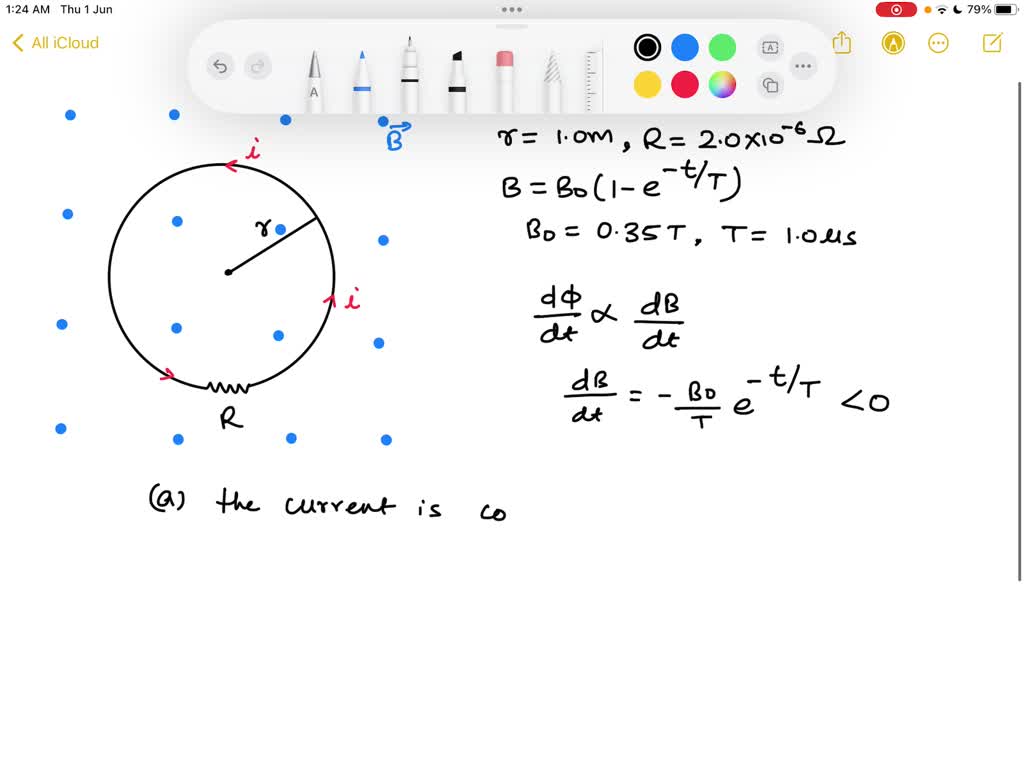 1:24 AM Thu 1 Jun
79%
All iCloud
A
A
B⃗
r = 1.0m, R = 2.0×10⁻⁶ Ω
i
B = B₀(1 - e^-t/T)
r
B₀ = 0.35T, T = 1.0μs
i
dΦ/dt ∝ dB/dt
dB/dt = - B₀/T e^-t/T < 0
R
(a) the current is co